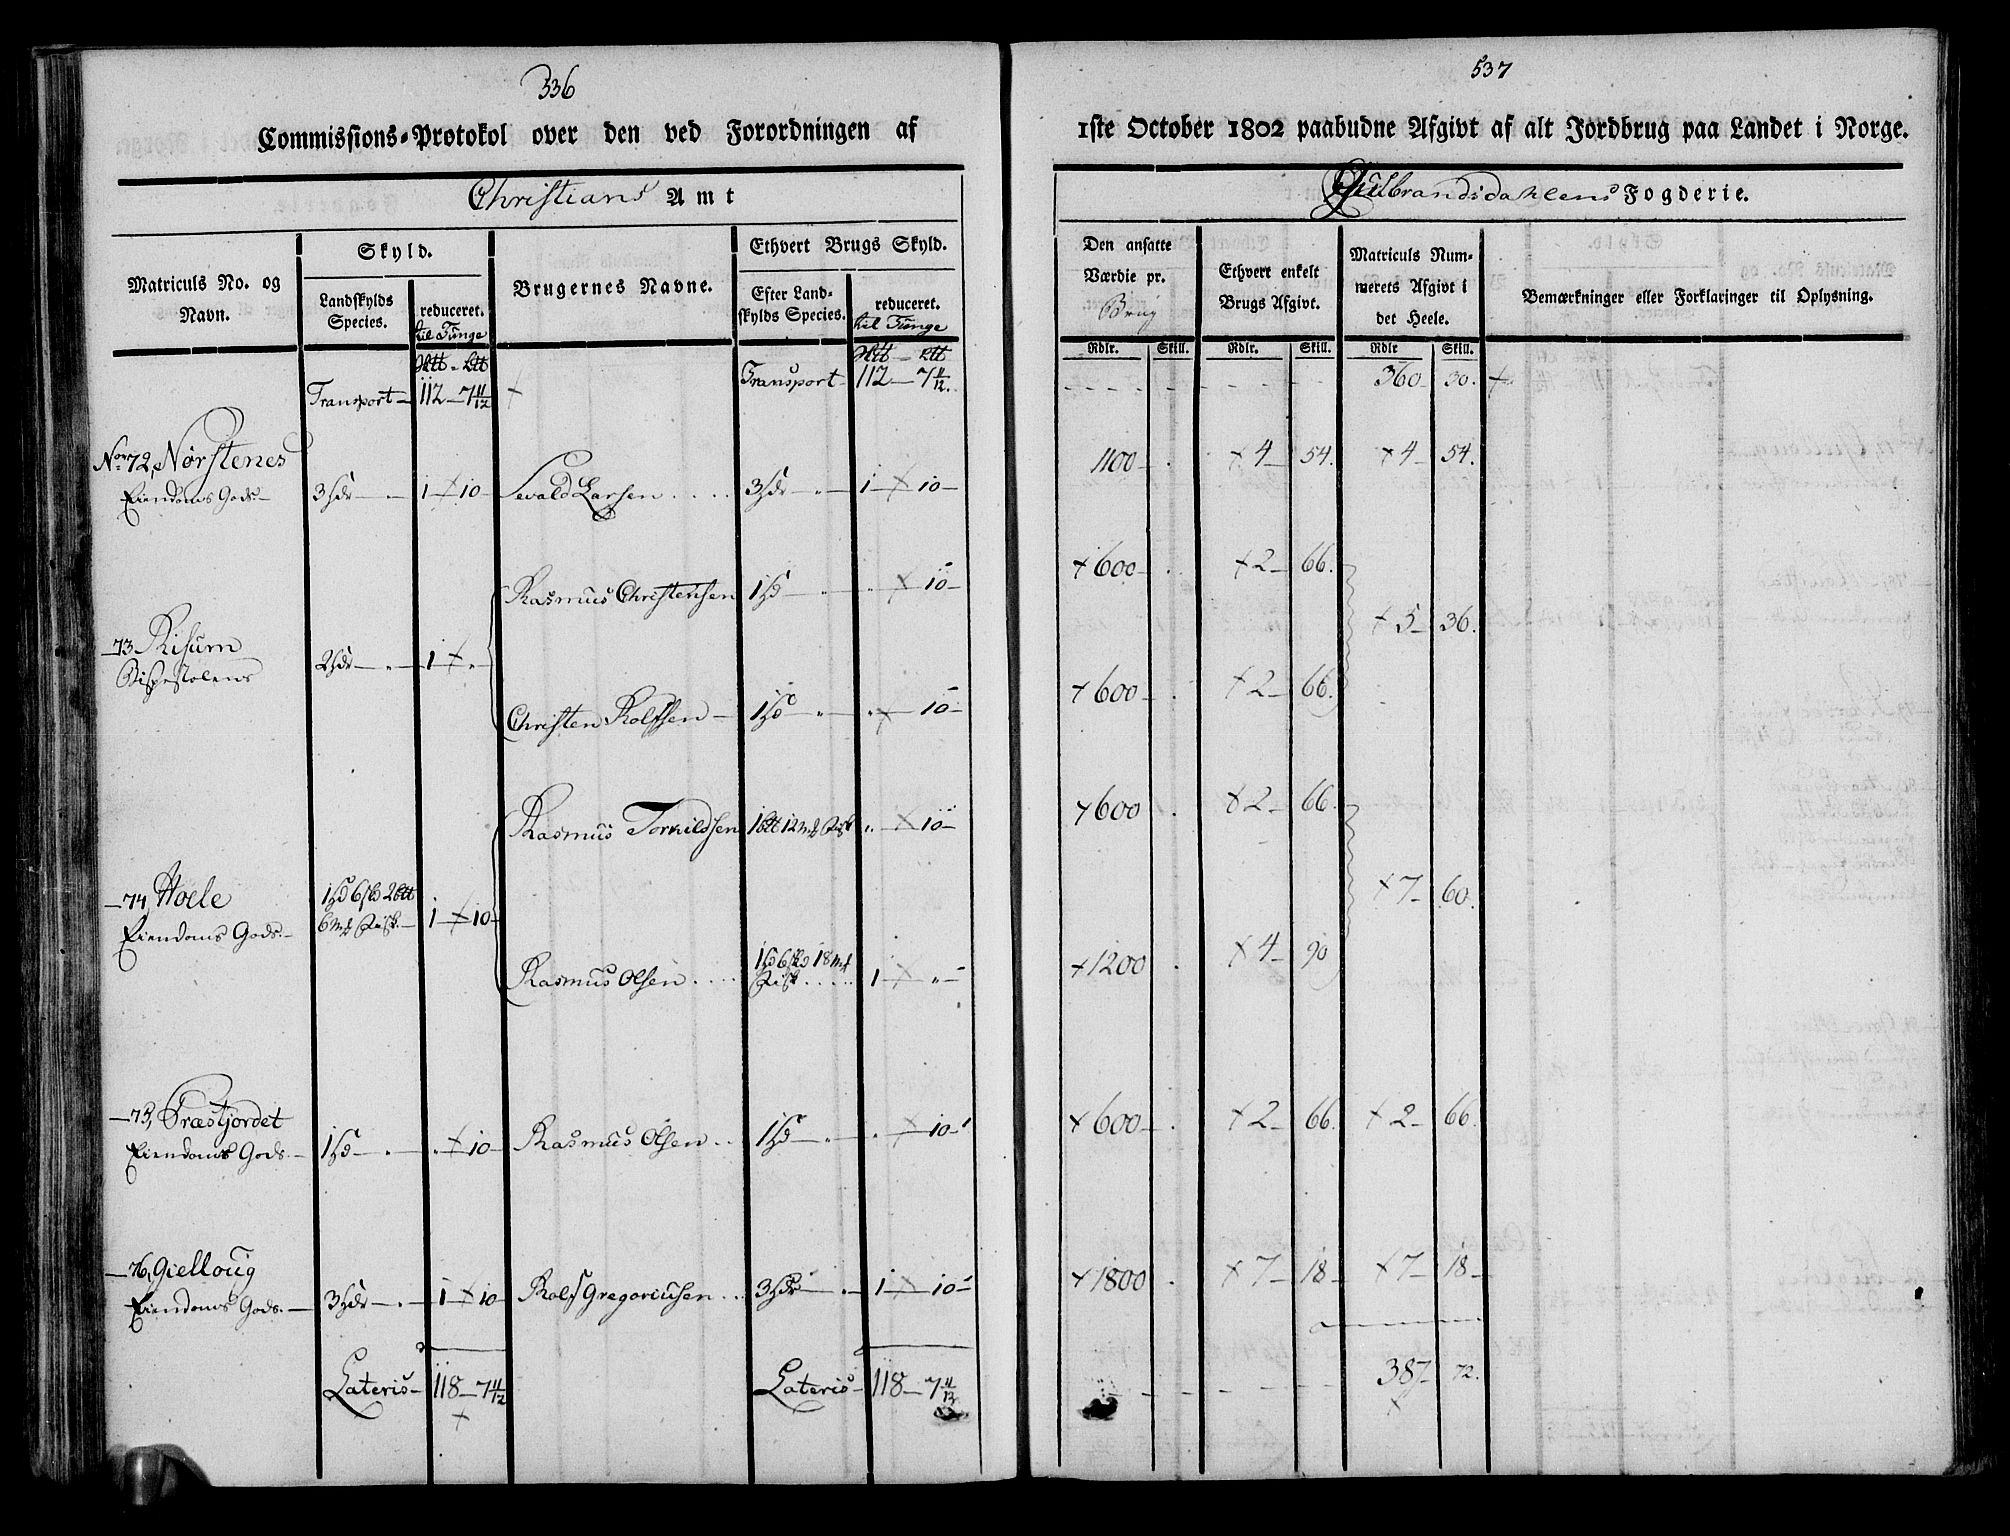 336
Commissions-Protokol over den ved Forordningen af
Christians Amt
Matriculs No. og Navn.
Skyld.
Landskylds Species.
reduceret. til Tunge
Brugernes Navne.
Ethvert Brugs Skyld.
Efter Landskylds Species.
reduceret. til Tunge
Transport 112 7 11/12 Transport 112 7 11/12
No. 72, Nørstenes
Eiendoms Gods 3 Hdr 1 10 Sevald Larsen 3 Hdr 1 10
Rasmus Christensen 1 Hd 10
73 Risum
Bispestolens 2 Hdr 1
Christen Rolfsen 1 Hd 10
Rasmus Torkildsen 10
74, Hoele
Eiendoms Gods 1 10
Rasmus Olsen 1
75, Træstjordet
Eiendoms Gods 1 Hd 10 Rasmus Olsen 1 Hd 10
76, Gielloug
Eiendoms Gods 3 Hdr 1 10 Rolf Gregoriusen 3 Hdr 1 10
Lateris 118 7 11/12 Lateris 118 7 11/12
537
1ste October 1802 paabudne Afgivt af alt Jordbrug paa Landet i Norge.
Gulbrandsdahlens Fogderie.
Den ansatte Værdie pr. Brug
Ethvert enkelt Brugs Afgivt.
Matriculs Nummerets Afgivt i det Heele.
Bemærkninger eller Forklaringer til Oplysning.
Rdlr. Skill. Rdlr. Skill. Rdlr Skill.
360 30.
1100 4 54. 4 54.
600 2 66.
5 36.
600 2 66.
600 2 66.
7 60.
1200 4 90
600 2 66. 2 66.
1800 7 18 7 18
387 72.